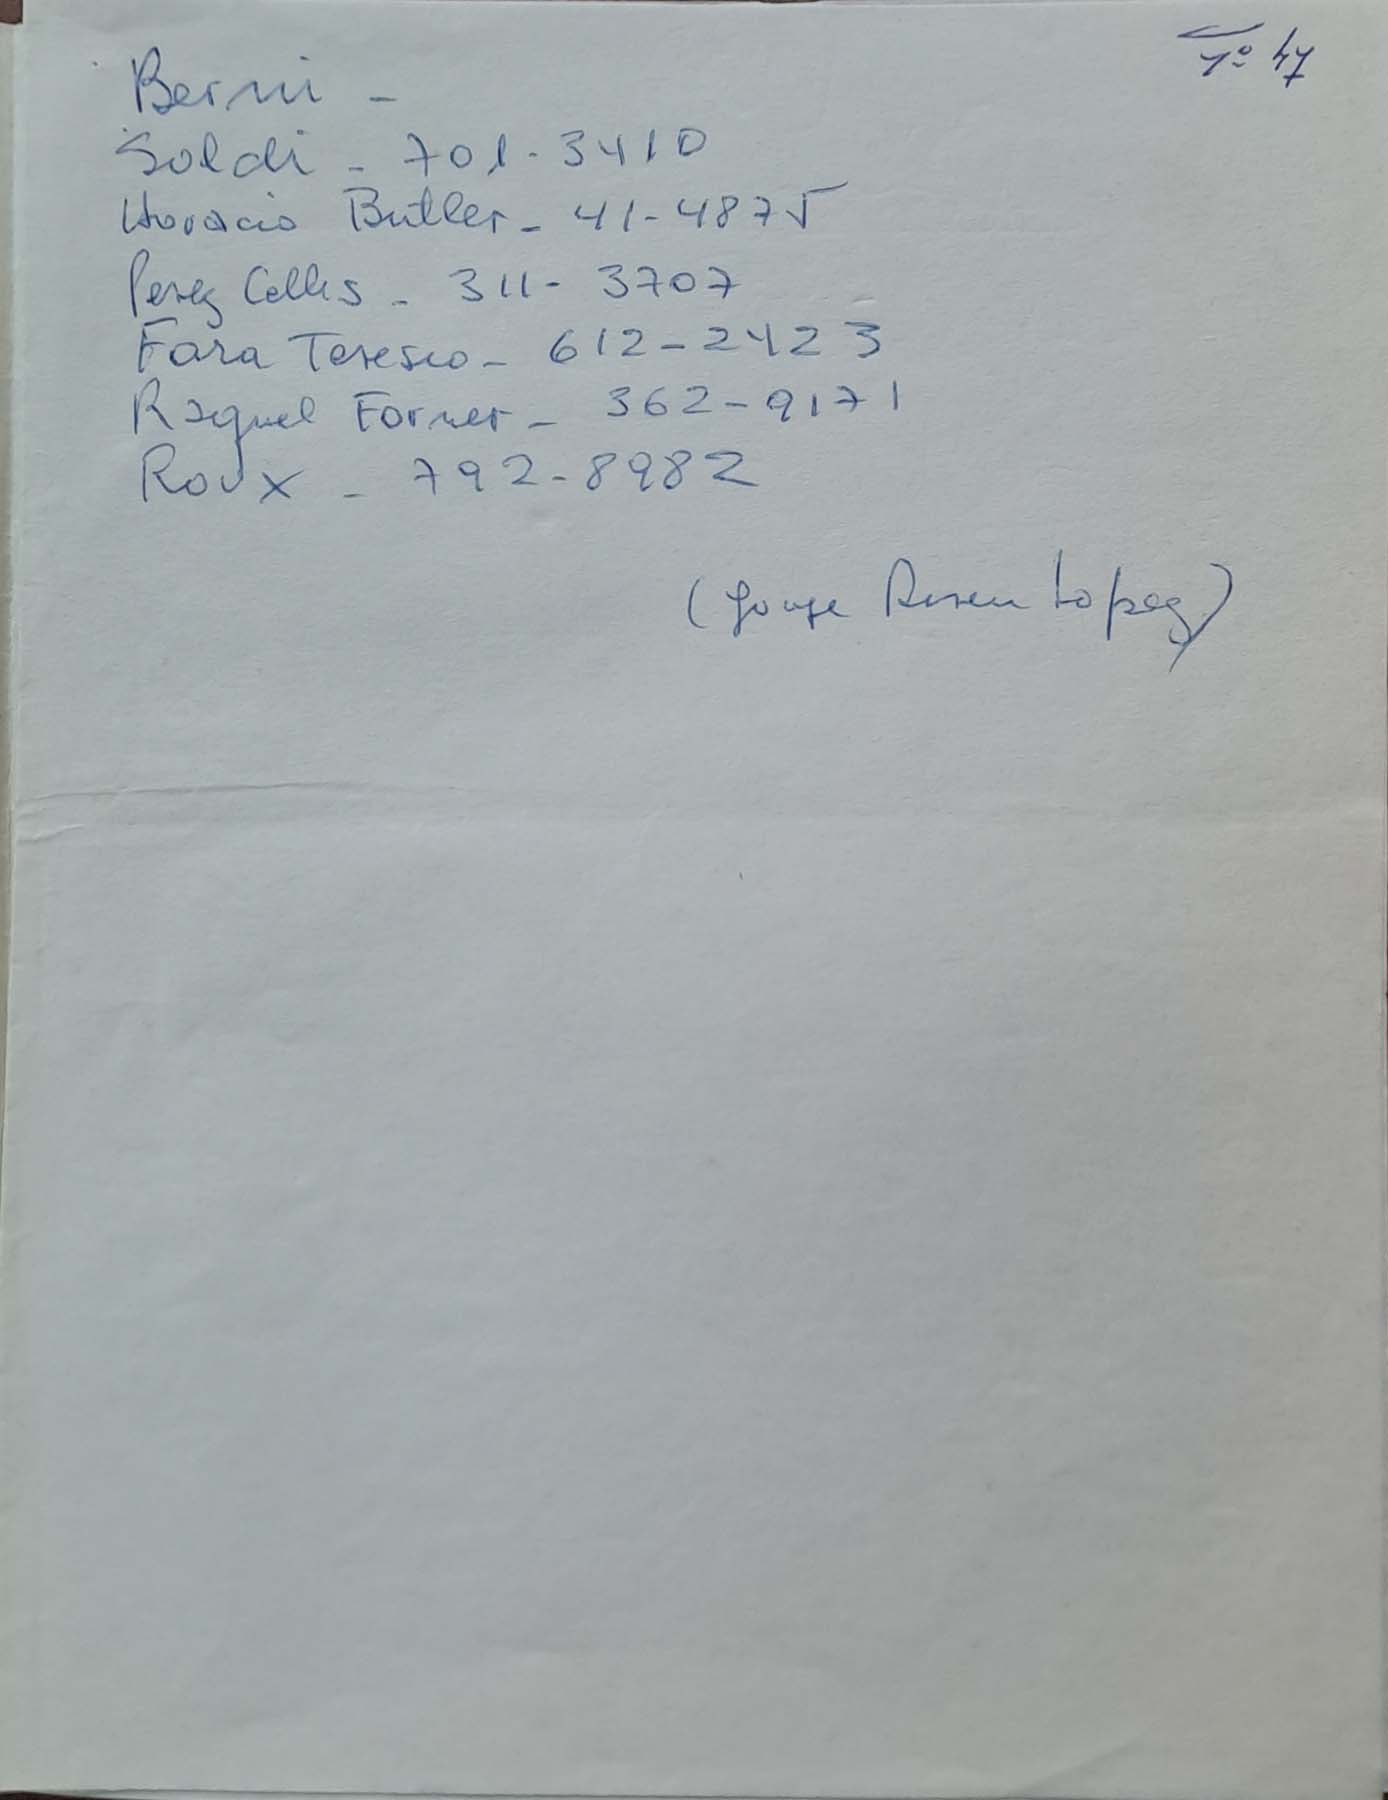 1º 47
Berni -
Soldi - 701-3410
Horacio Butler - 41-4875
Perez Cellis - 311-3707
Fara Teresco - 612-2423
Raquel Forner - 362-9171
Roux - 792-8982
(Jorge Lopez)